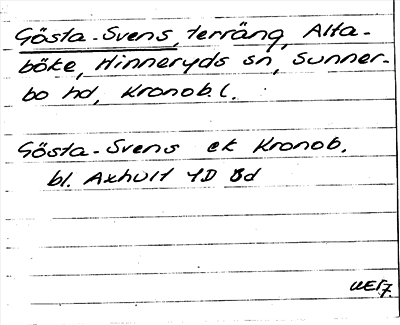 Gösta-Svens, terräng, Alta-
böke, Hinneryds sn, Sunner-
bo hd, Kronob. l.
Gösta-Svens ek Kronob.
bl. Axhult 4D Bd